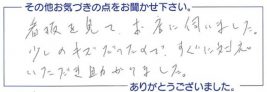 その他お気づきの点をお聞かせ下さい。
看板を見て、お店に伺いました。
少しのキズだったので、すぐに対応
いただき助かりました。
ありがとうございました。